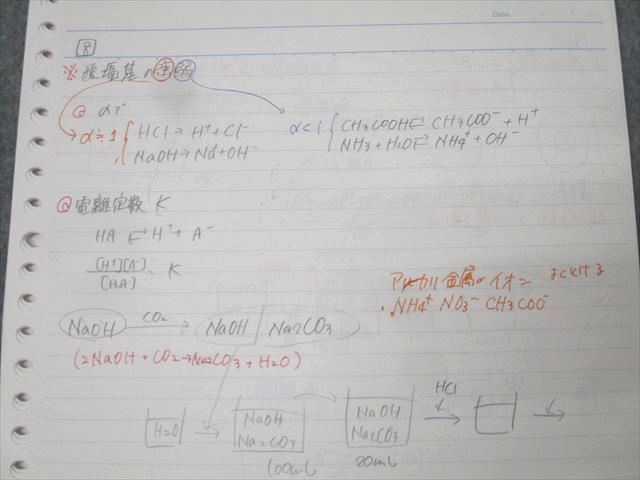 Date
8
※酸塩基の強弱
@ αで
α≒1 { HCl → H⁺ + Cl⁻
NaOH → Na⁺ + OH⁻
α<1 { CH3COOH ⇄ CH3COO⁻ + H⁺
NH3 + H2O ⇄ NH4⁺ + OH⁻
@ 電離定数 K
HA ⇄ H⁺ + A⁻
[H⁺][A⁻]
[HA]
K
アルカリ金属のイオン よくとける
・NH4⁺ NO3⁻ CH3COO⁻
NaOH CO2 → NaOH | Na2CO3
(2NaOH + CO2 → Na2CO3 + H2O)
H2O → NaOH Na2CO3
100mL
NaOH Na2CO3
20mL
HCl